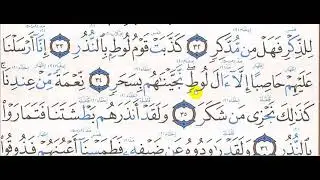 لِلذِّكْرِ فَهَلْ مِن مُّدَّكِرٍ ٣٢ كَذَّبَتْ قَوْمُ لُوطٍۭ بِٱلنُّذُرِ ٣٣ إِنَّآ أَرْسَلْنَا
عَلَيْهِمْ حَاصِبًا إِلَّآ ءَالَ لُوطٍ ۖ نَّجَّيْنَٰهُم بِسَحَرٍ ٣٤ نِّعْمَةً مِّنْ عِندِنَا ۚ
كَذَٰلِكَ نَجْزِى مَن شَكَرَ ٣٥ وَلَقَدْ أَنذَرَهُم بَطْشَتَنَا فَتَمَارَوْا۟
بِٱلنُّذُرِ ٣٦ وَلَقَدْ رَٰوَدُوهُ عَن ضَيْفِهِۦ فَطَمَسْنَآ أَعْيُنَهُمْ فَذُوقُوا۟